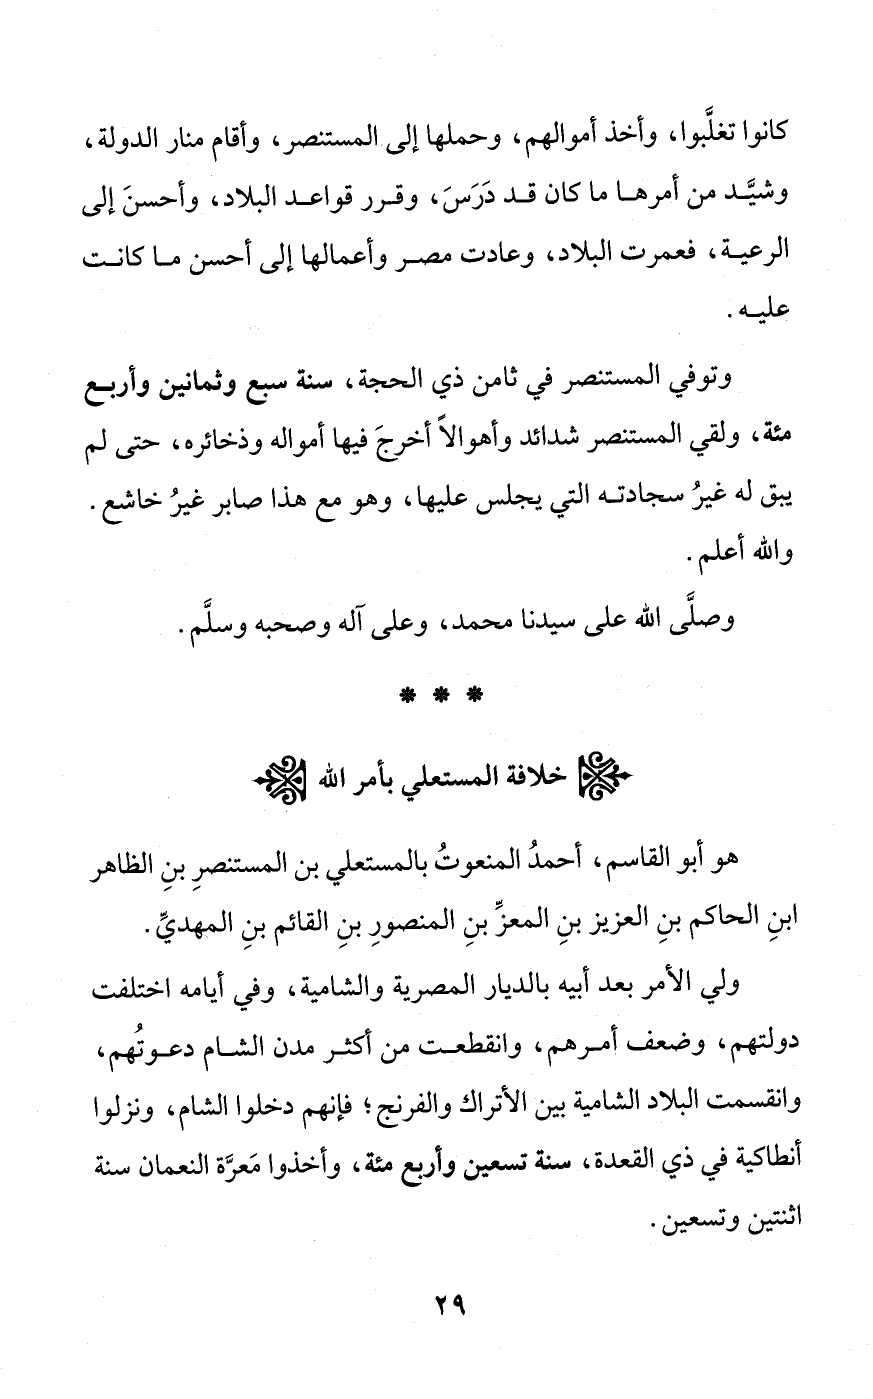 كانوا تغلَّبوا، وأخذ أموالهم، وحملها إلى المستنصر، وأقام منار الدولة،
وشيَّد من أمرها ما كان قد دَرَسَ، وقرر قواعد البلاد، وأحسنَ إلى
الرعية، فعمرت البلاد، وعادت مصر وأعمالها إلى أحسن ما كانت
عليه.
وتوفي المستنصر في ثامن ذي الحجة، سنة سبع وثمانين وأربع
مئة، ولقي المستنصر شدائد وأهوالاً أخرجَ فيها أمواله وذخائره، حتى لم
يبق له غيرُ سجادته التي يجلس عليها، وهو مع هذا صابر غيرُ خاشع.
والله أعلم.
وصلَّى الله على سيدنا محمد، وعلى آله وصحبه وسلَّم.
* * *
خلافة المستعلي بأمر الله
هو أبو القاسم، أحمدُ المنعوتُ بالمستعلي بن المستنصرِ بنِ الظاهر
ابنِ الحاكم بنِ العزيز بنِ المعزِّ بنِ المنصورِ بنِ القائم بنِ المهديِّ.
ولي الأمر بعد أبيه بالديار المصرية والشامية، وفي أيامه اختلفت
دولتهم، وضعف أمرهم، وانقطعت من أكثر مدن الشام دعوتُهم،
وانقسمت البلاد الشامية بين الأتراك والفرنج؛ فإنهم دخلوا الشام، ونزلوا
أنطاكية في ذي القعدة، سنة تسعين وأربع مئة، وأخذوا مَعرَّة النعمان سنة
اثنتين وتسعين.
٢٩